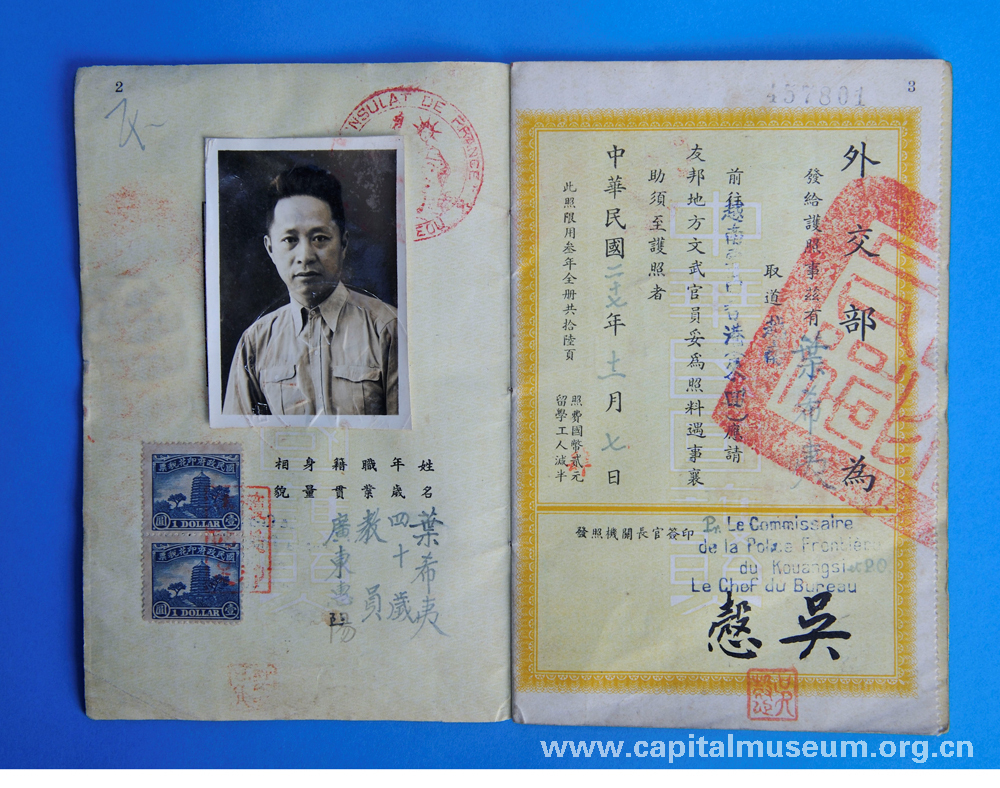 2
CONSULAT DE FRANCE
國民政府印花稅票
圓 1 DOLLAR 壹
國民政府印花稅票
圓 1 DOLLAR 壹
姓名 葉希夷
年歲 四十歲
職業 教員
籍貫 廣東惠陽
身量
相貌
3
457801
外交部 為
發給護照事茲有 葉希夷
取道
前往越南 香港 應請
友邦地方文武官員妥為照料遇事襄
助須至護照者
中華民國二十七年十二月七日
此照限用叁年全册共拾陸頁
照費國幣貳元
留學工人減半
發照機關長官簽印
Pr. Le Commissaire
de la Police Frontière
du Kouangsi
Le Chef du Bureau
吳
www.capitalmuseum.org.cn